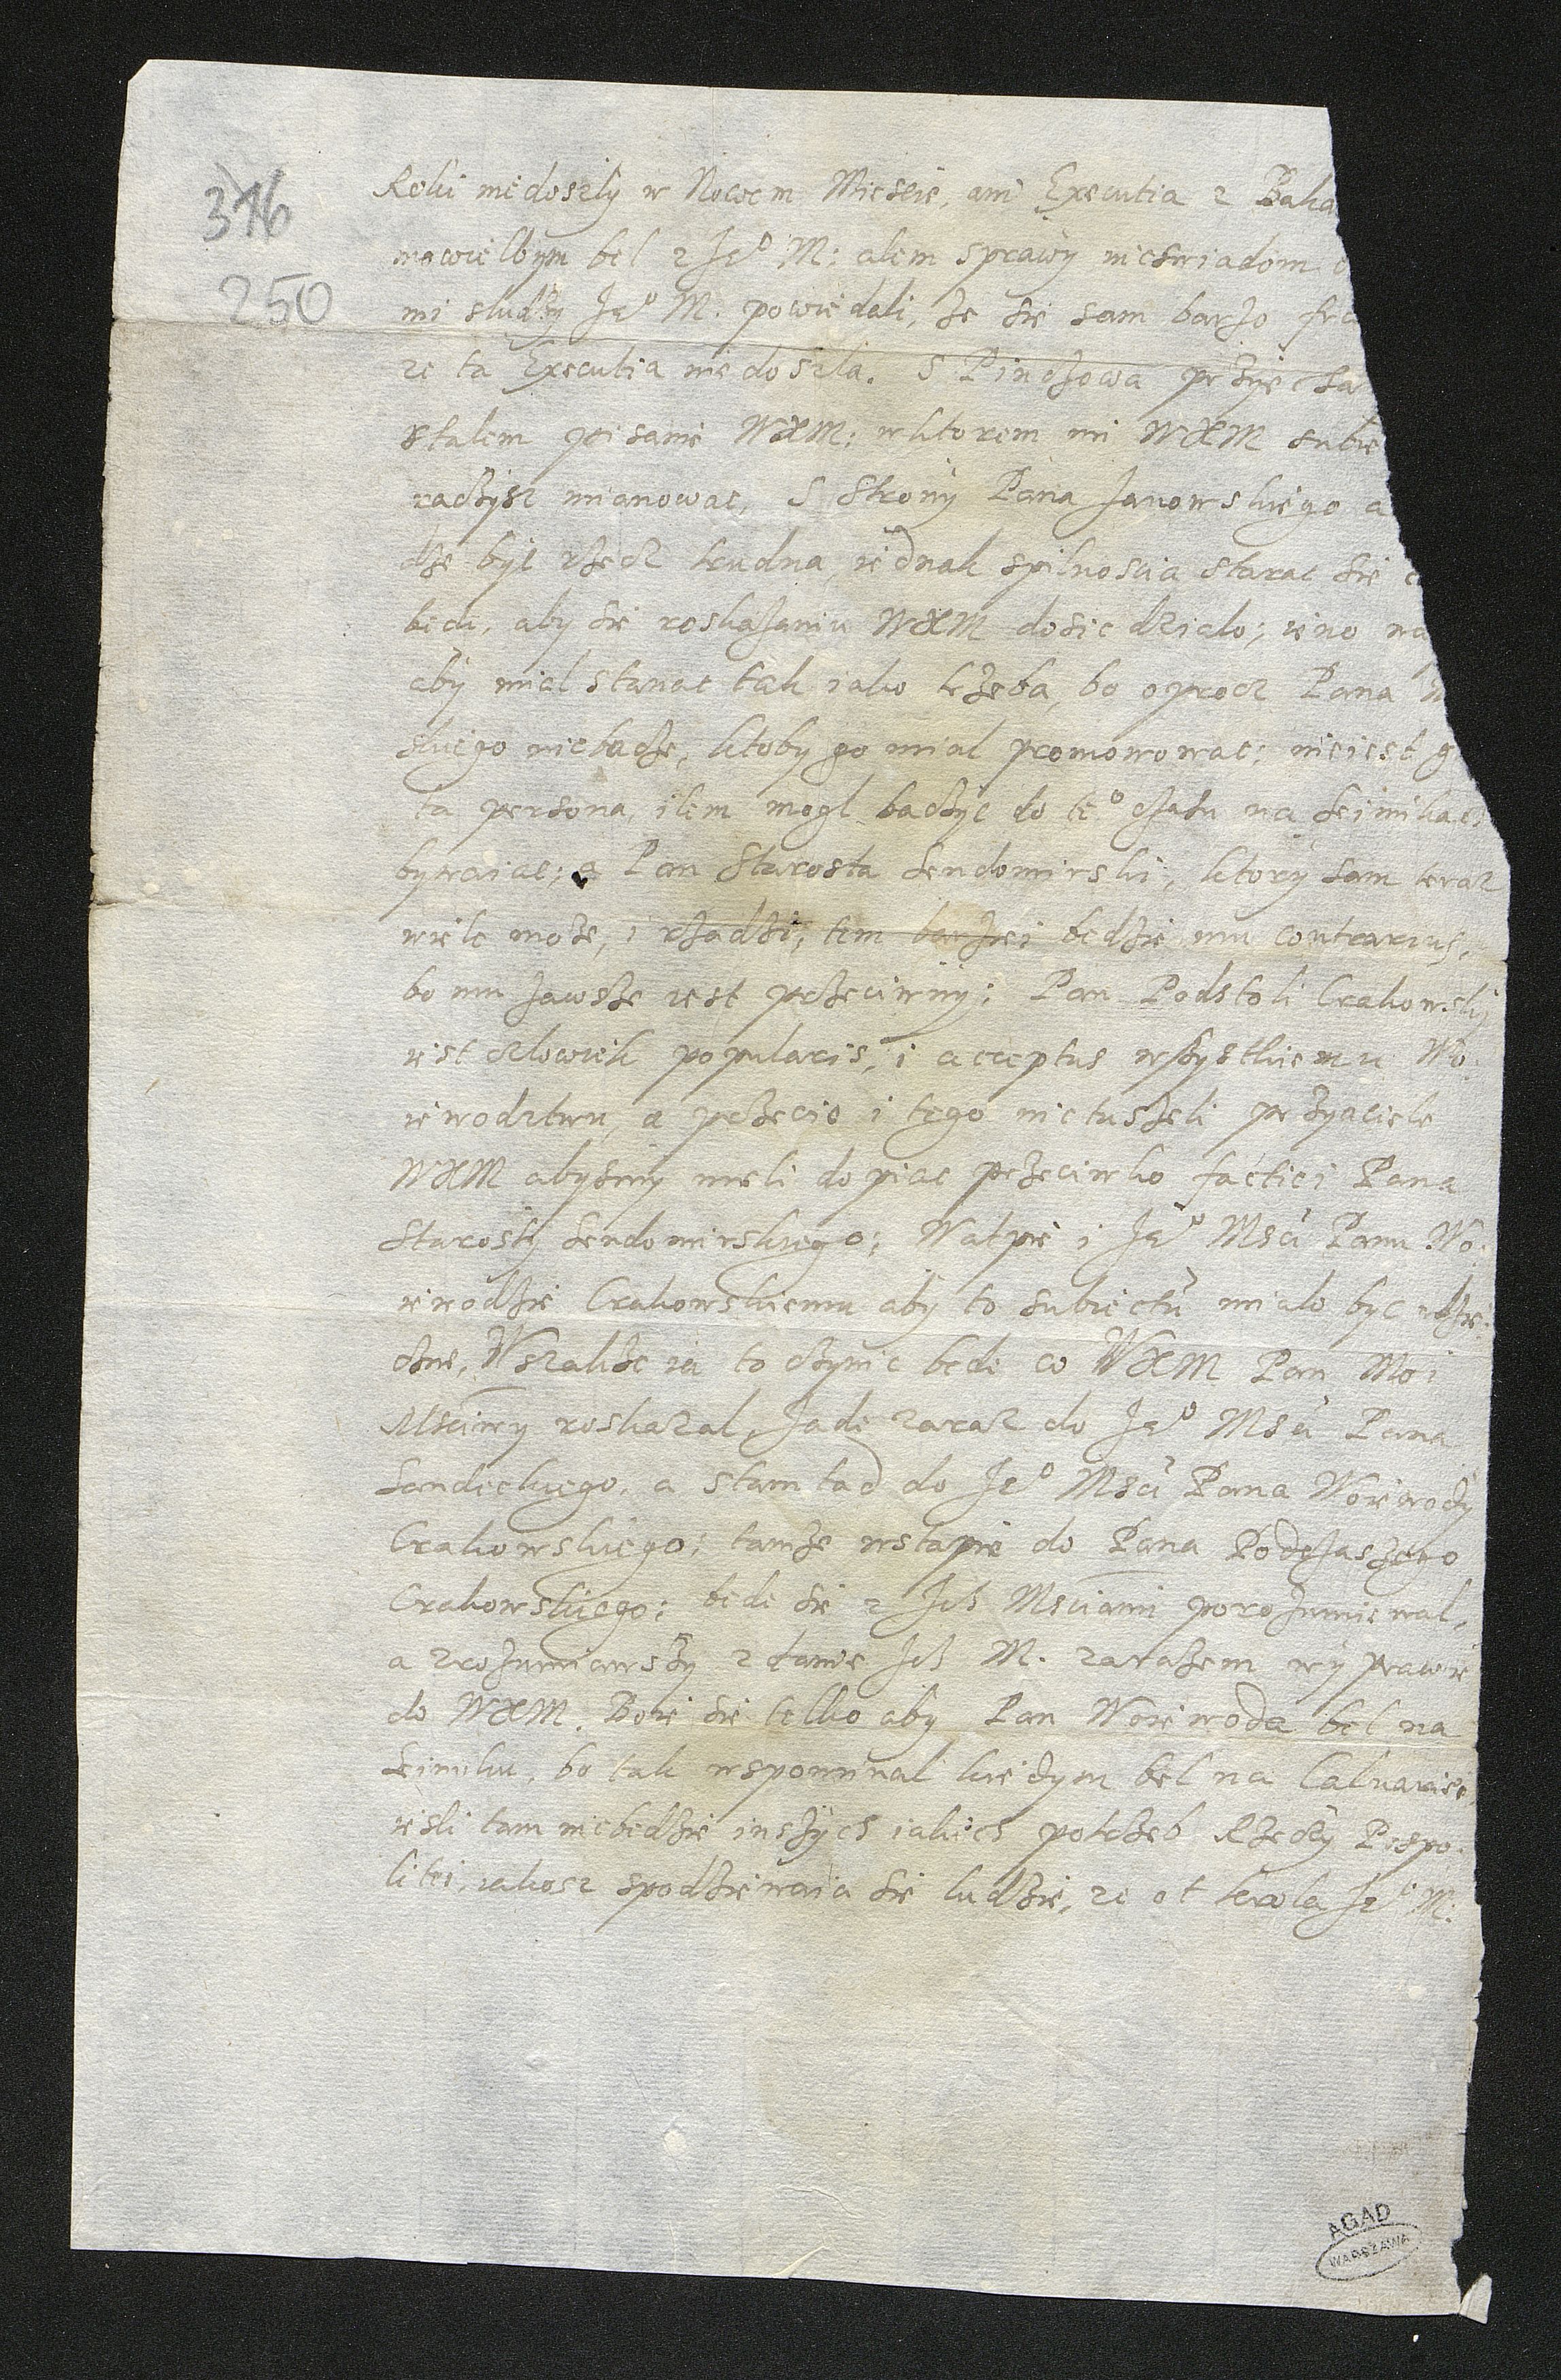 316
250
Roki nie doszly w Nowem Miescie, ani Executia z Baka
mowielbym bel z Je° M: alem sprawy nieswiadom
mi sludzy Je° M. powiedali, ze sie sam barzo fra
ze ta Executia nie doszla. S Pinczowa przyiecha
stalem pisanie WXM: w ktorem mi WXM subie
raczysz mianowac, S Strony Pana Janowskiego a
dze byc rzecz trudna, iednak spilnoscia starac sie
bede, aby sie roskazaniu WXM dosic dzialo; ieno na
aby mial stanac tak iako trzeba, bo oprocz Pana
skiego niebacze, ktoby go mial promowowac; nieiest g
ta persona, ilem mogl baczyc do te° czasu na seimikac
bywaiac; a Pan Starosta Sendomirski, ktory sam teraz
wiele moze, i rzadzi, tem barziei bedzie mu contrarius,
bo mu zawsze iest przeciwny; Pan Podstoli Crakowsky
iest czlowiek popularis, i acceptus wszystkiemu Wo:
iewodztwu, a przecie i tego nietuszeli przyaciele
WXM abysmy mieli dopiac przeciwko factiei Pana
Starosty Sendomirskiego; Watpie i Je° Msci Panu Wo:
iewodzie Crakowskiemu aby to subiectu mialo byc wdzie:
czne, Wszakze ia to czynic bede co WXM Pan Moi
Msciwy roskazal, Jade zaraz do Je° Msci Pana
Sandeckiego, a stamtad do Je° Msci Pana Woiewody
Crakowskiego; tamze wstapie do Pana Podczaszego
Crakowskiego; bede sie z Ich Msciami porozumiewal,
a zrozumiawszy zdanie Ich M. zarazem wyprawie
do WXM. Boie sie telko aby Pan Woiewoda bel na
Seimiku, bo tak wspominal kiedym bel na Calwariei,
iesli tam niebedzie inszych iakich potrzeb Rzeczy Pospo:
litei, iakosz spodziewaia sie ludzie, ze ot krola Je° M:
AGAD
WARSZAWA